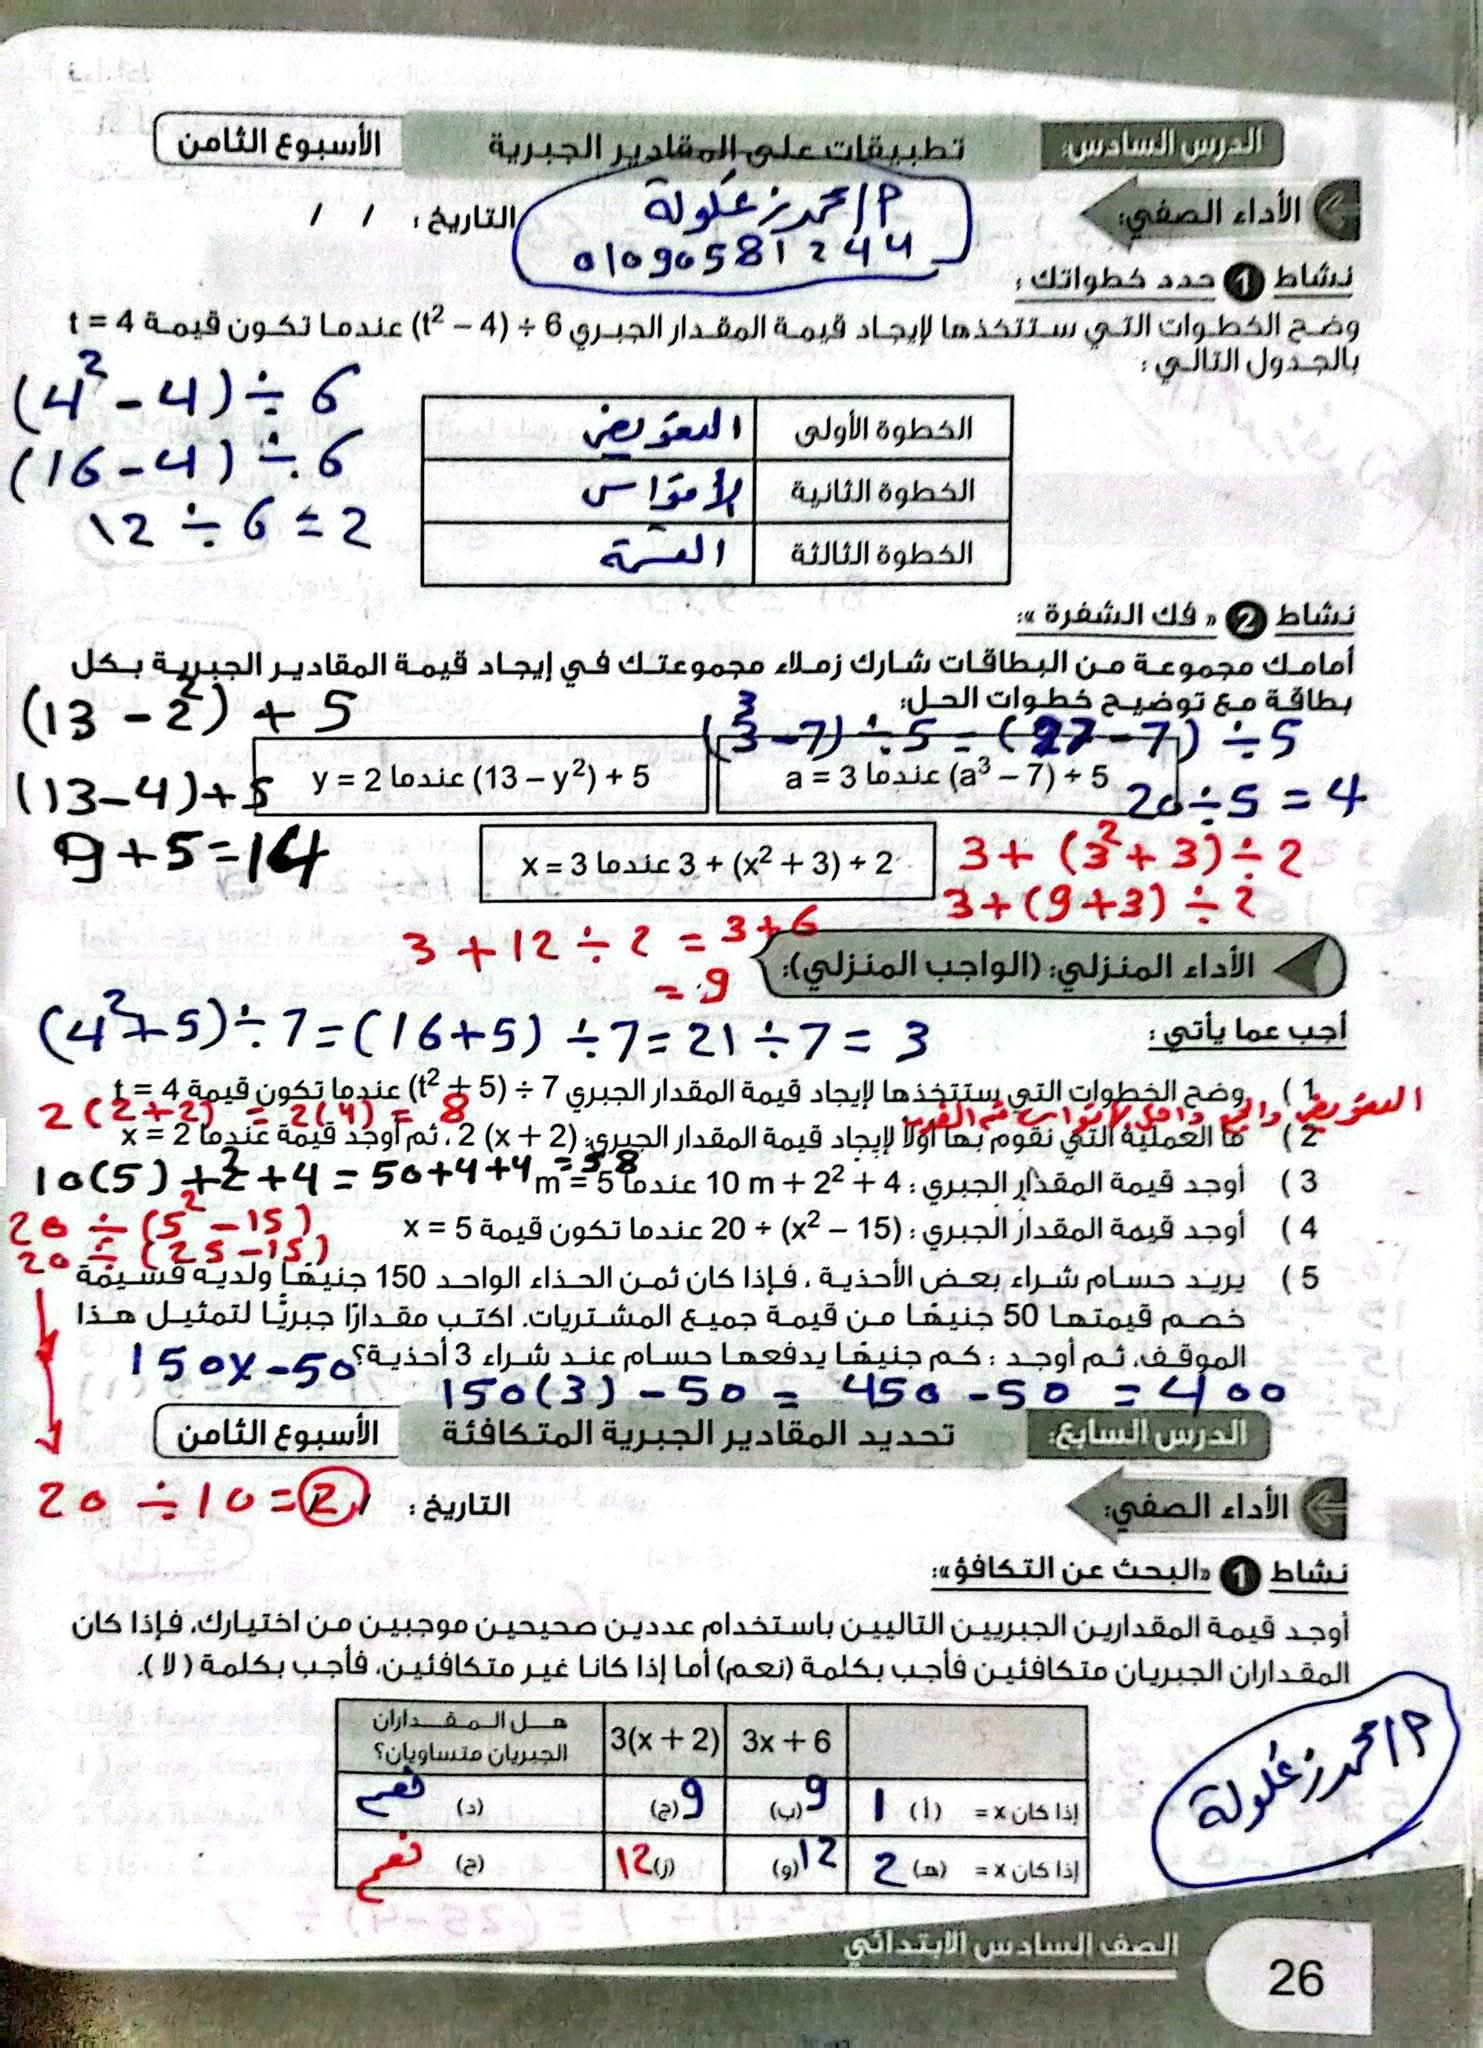 الدرس السادس: تطبيقات على المقادير الجبرية الأسبوع الثامن
الأداء الصفي: م/محمد زعكولة التاريخ: / /
01090581244
نشاط 1 حدد خطواتك:
وضح الخطوات التي ستتخذها لإيجاد قيمة المقدار الجبري (t² – 4) ÷ 6 عندما تكون قيمة t = 4
بالجدول التالي:
(4² - 4) ÷ 6
(16 - 4) ÷ 6
12 ÷ 6 = 2
الخطوة الأولى التعويض
الخطوة الثانية الأقواس
الخطوة الثالثة القسمة
نشاط 2 « فك الشفرة »:
أمامك مجموعة من البطاقات شارك زملاء مجموعتك في إيجاد قيمة المقادير الجبرية بكل
بطاقة مع توضيح خطوات الحل:
(3³ - 7) ÷ 5 = (27 - 7) ÷ 5
20 ÷ 5 = 4
(a³ – 7) ÷ 5 عندما a = 3
(13 – y²) + 5 عندما y = 2
(13 - 2²) + 5
(13 - 4) + 5
9 + 5 = 14
3 + (x² + 3) ÷ 2 عندما x = 3
3 + (3² + 3) ÷ 2
3 + (9 + 3) ÷ 2
3 + 12 ÷ 2 = 3 + 6
= 9
الأداء المنزلي: (الواجب المنزلي):
أجب عما يأتي:
(4² + 5) ÷ 7 = (16 + 5) ÷ 7 = 21 ÷ 7 = 3
1 ) وضح الخطوات التي ستتخذها لإيجاد قيمة المقدار الجبري (t² + 5) ÷ 7 عندما تكون قيمة t = 4
التعويض والجمع داخل الأقواس ثم الضرب
2 (2 + 2) = 2(4) = 8
2 ) ما العملية التي نقوم بها أولًا لإيجاد قيمة المقدار الجبري: 2 (x + 2)، ثم أوجد قيمة عندما x = 2
3 ) أوجد قيمة المقدار الجبري: 10 m + 2² + 4 عندما m = 5
10(5) + 2² + 4 = 50 + 4 + 4 = 58
4 ) أوجد قيمة المقدار الجبري: 20 ÷ (x² – 15) عندما تكون قيمة x = 5
20 ÷ (5² - 15)
20 ÷ (25 - 15)
5 ) يريد حسام شراء بعض الأحذية، فإذا كان ثمن الحذاء الواحد 150 جنيهًا ولديه قسيمة
خصم قيمتها 50 جنيهًا من قيمة جميع المشتريات. اكتب مقدارًا جبريًا لتمثيل هذا
الموقف، ثم أوجد: كم جنيهًا يدفعها حسام عند شراء 3 أحذية؟
150x - 50
150(3) - 50 = 450 - 50 = 400
الدرس السابع: تحديد المقادير الجبرية المتكافئة الأسبوع الثامن
الأداء الصفي: التاريخ: / /
20 ÷ 10 = 2
نشاط 1 «البحث عن التكافؤ»:
أوجد قيمة المقدارين الجبريين التاليين باستخدام عددين صحيحين موجبين من اختيارك، فإذا كان
المقداران الجبريان متكافئين فأجب بكلمة (نعم) أما إذا كانا غير متكافئين، فأجب بكلمة ( لا ).
3x + 6 3(x + 2) هل المقداران
الجبريان متساويان؟
إذا كان x = (أ) 1 (ب) 9 (ج) 9 (د) نعم
إذا كان x = (هـ) 2 (و) 12 (ز) 12 (ح) نعم
م/محمد زعكولة
الصف السادس الابتدائي
26